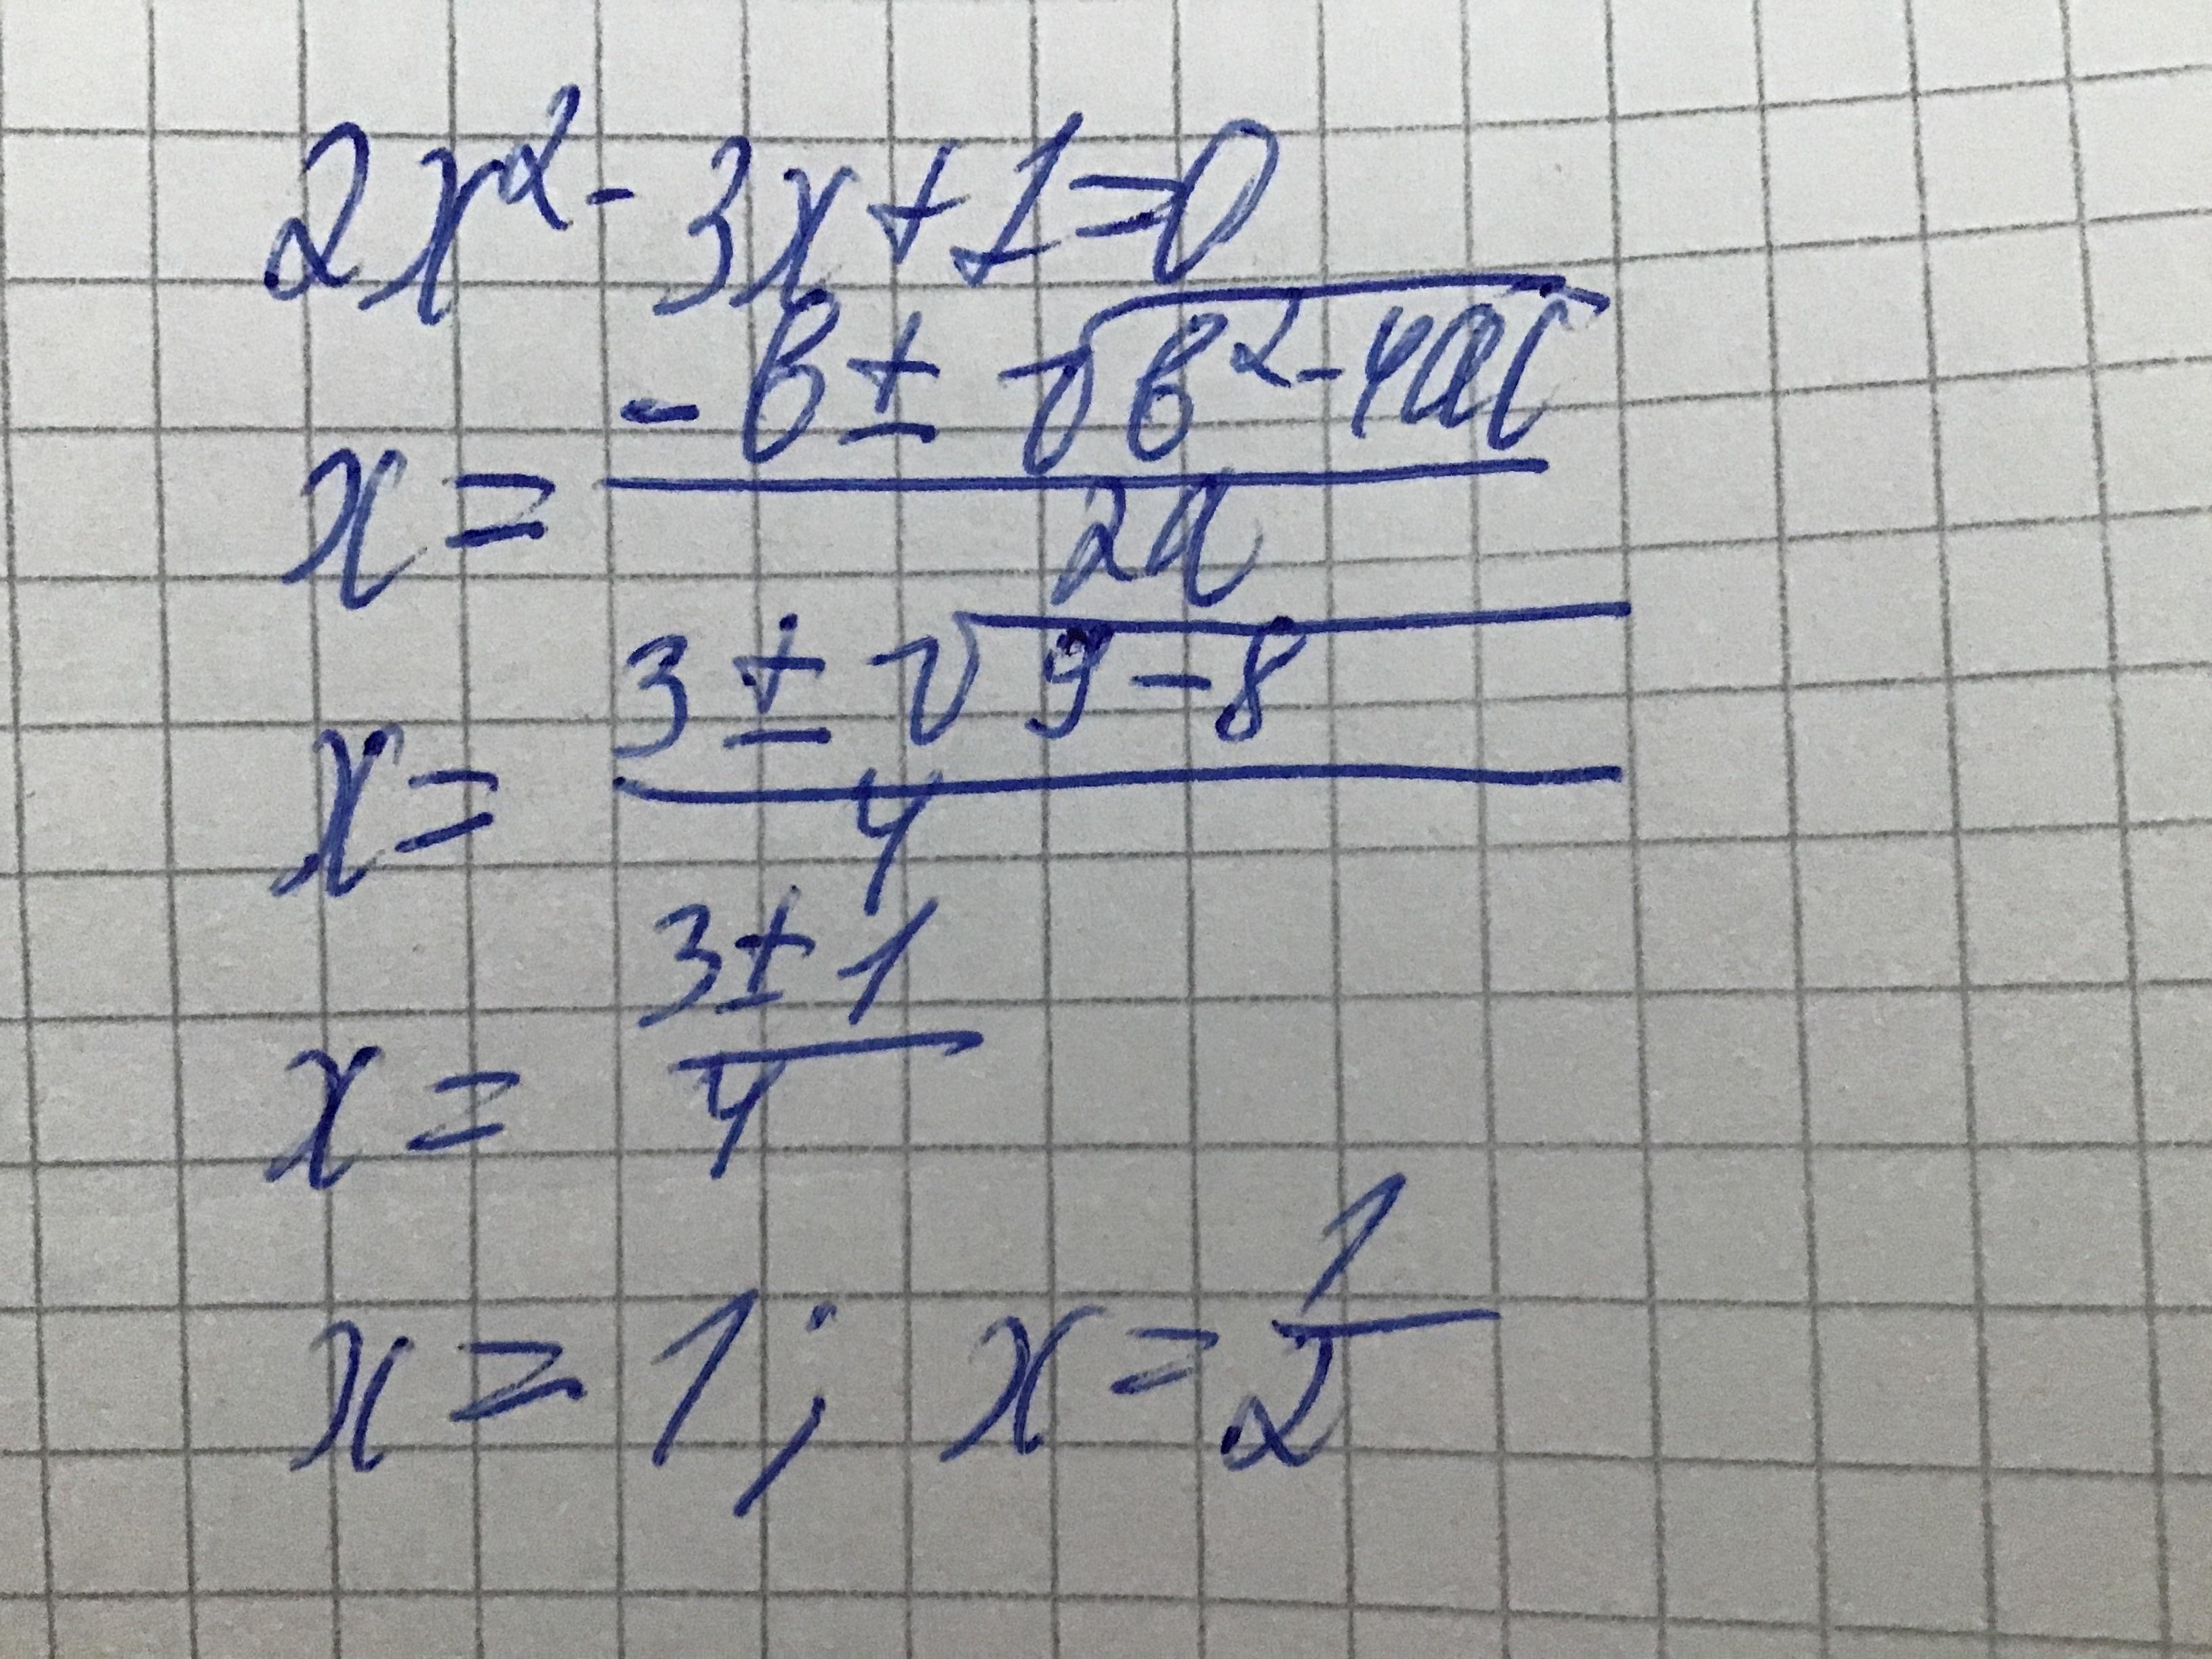 2x² - 3x + 1 = 0
x = (-b ± √(b² - 4ac)) / 2a
x = (3 ± √(9 - 8)) / 4
x = (3 ± 1) / 4
x = 1; x = 1/2